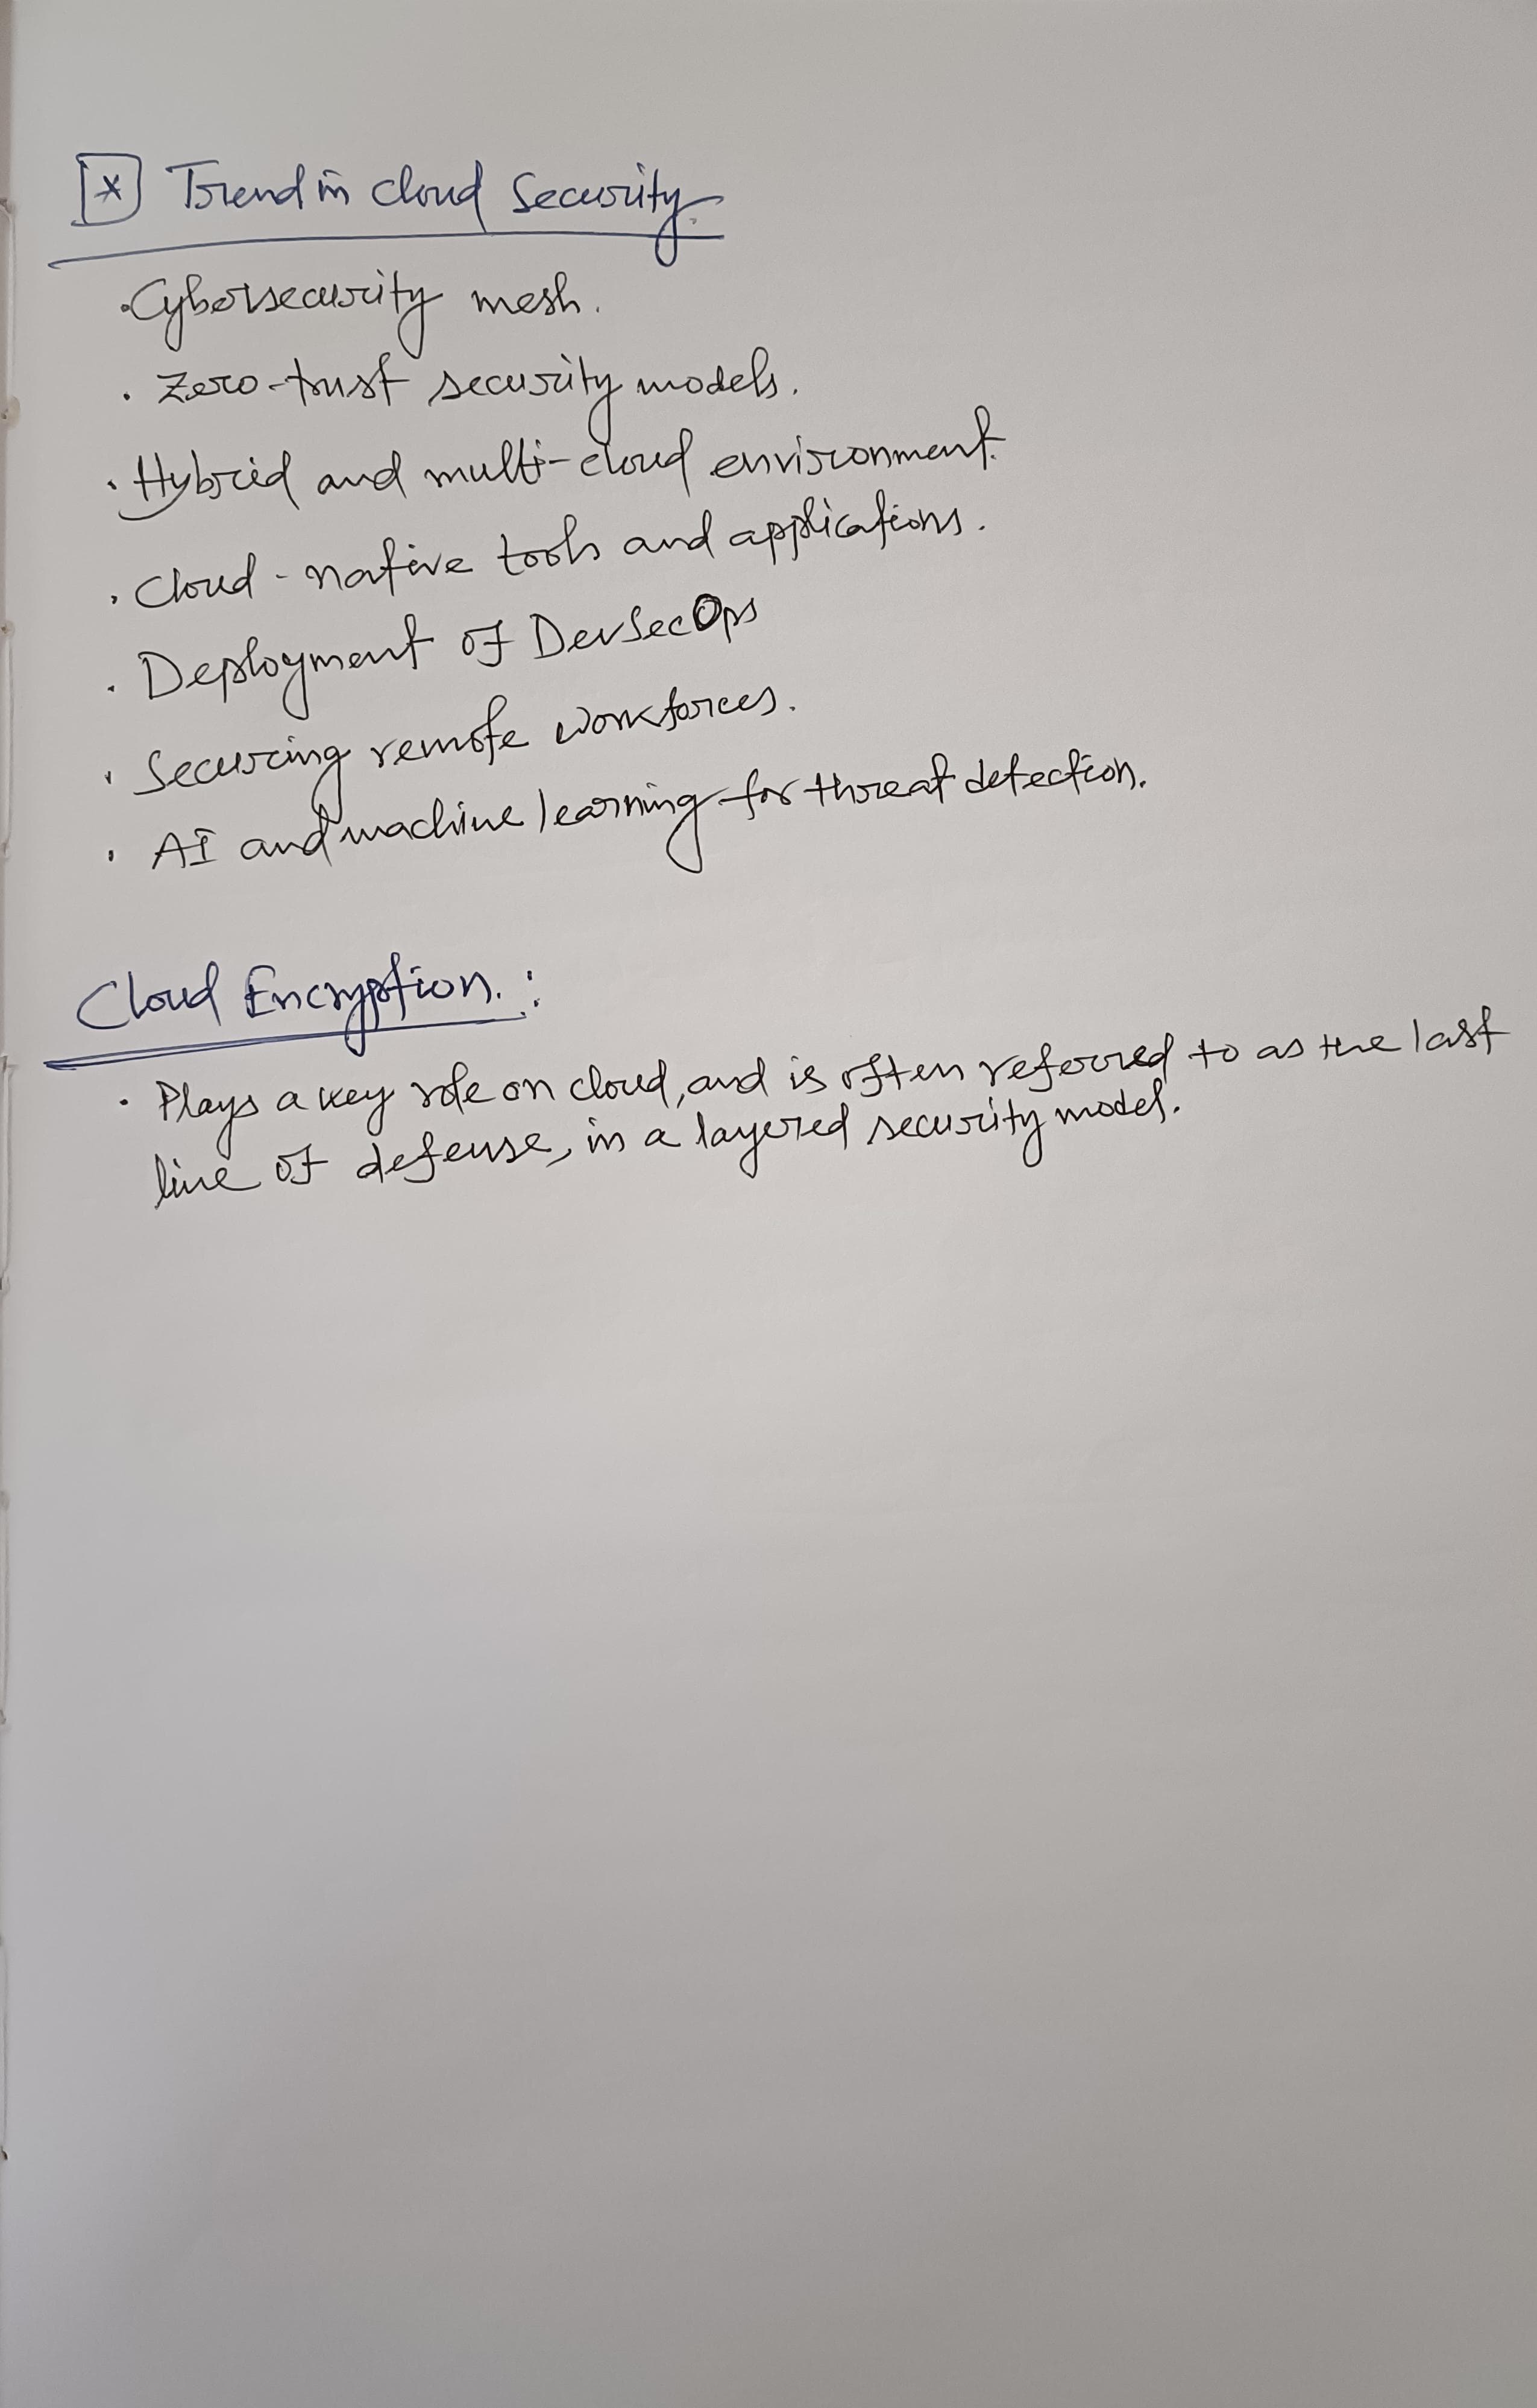 [*] Trend in Cloud Security.
• Cybersecurity mesh.
• Zero-trust security models.
• Hybrid and multi-cloud environment.
• Cloud-native tools and applications.
• Deployment of DevSecOps
• Securing remote workforces.
• AI and machine learning for threat detection.
Cloud Encryption. :
• Plays a key role on cloud, and is often referred to as the last
line of defense, in a layered security model.